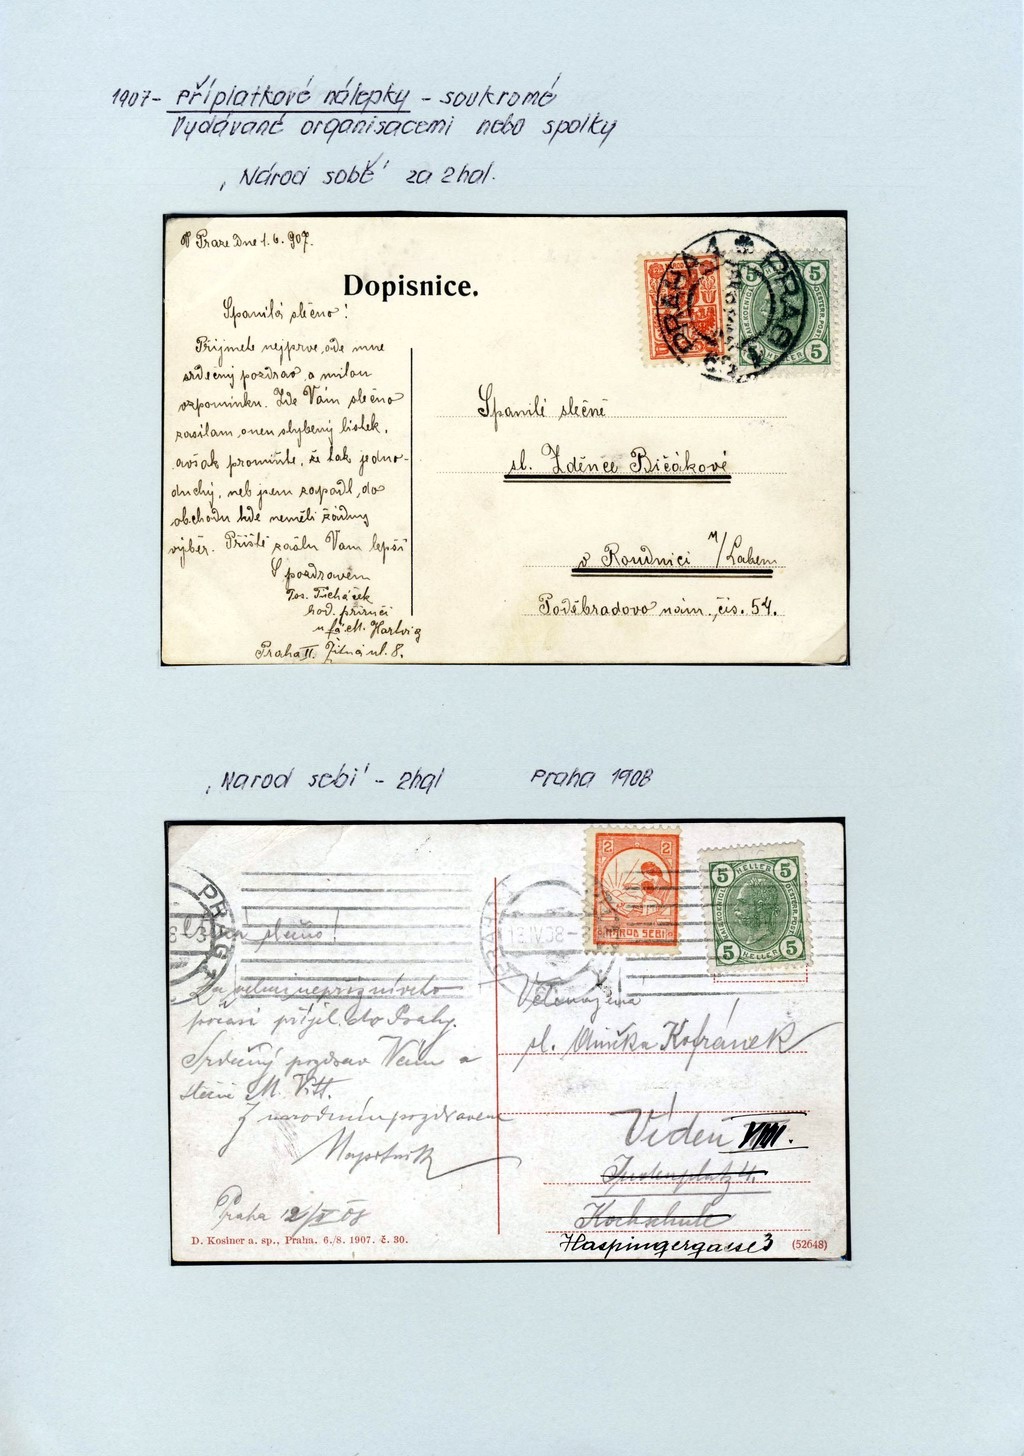 1907 - Příplatkové nálepky - soukromé
Vydávané organisacemi nebo spolky
, Národ sobě' za 2hal.
V Praze Dne 1. 6. 907.
Dopisnice.
Spanilá slečno!
Prijmete nejprve ode mne
srdečný pozdrav a milou
vzpomínku. Zde Vám slečno
zasílam onen slybený lístek,
avšak promiňte, že tak jedno-
duchý, neb jsem zapadl do
obchodu kde neměli žádný
výběr. Příště zašlu Vam lepší
S pozdravem
Jos. Ticháček
hod. příručí
u fá M. Hartvig
Praha II. Žitná ul. 8.
PRAHA 1 PRAG 1
5 5
5
HELLER
Spanilé slečně
sl. Zděnce Bičákové
v Roudnici n/Labem
Poděbradovo nám. čís. 54.
, Narod sobi' - 2hal Praha 1908
PRAG 1
PRAHA
13.IV.08
2 2
NÁROD SEBI
5 HELLER 5
5 HELLER 5
slečno!
Za velmi nepříznivého
počasí přijel do Prahy.
Srdečný pozdrav Vám a
M. Vitt.
Z národním pozdravem
Napotnik
Praha 12/IV 08
D. Kosiner a sp., Praha. 6./8. 1907. č. 30.
Velevážená
sl. Anička Kofránek
Vídeň VIII.
Judenplatz 4.
Kochschule
Haspingergasse 3
(52648)